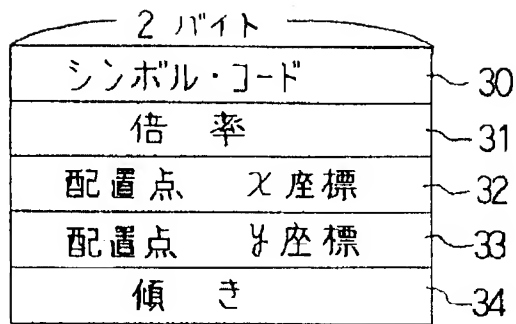 2 バイト
シンボル・コード 30
倍 率 31
配置点 x座標 32
配置点 y座標 33
傾 き 34